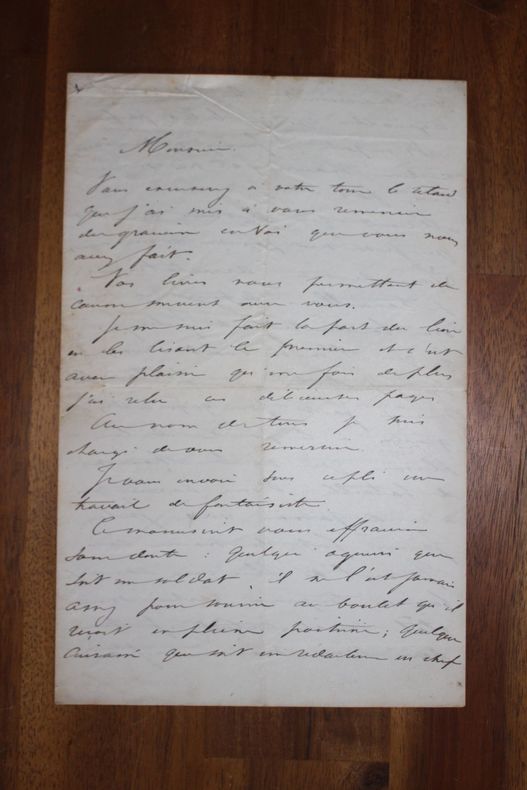 Monsieur.
Vous excuserez à votre tour le retard
que j'ai mis à vous remercier
du gracieux envoi que vous nous
avez fait.
Vos livres nous permettent de
causer souvent avec vous.
Je me suis fait la part du lion
en les lisant le premier et c'est
avec plaisir qu'une fois de plus
j'ai relu ces délicieuses pages
Au nom de tous je suis
chargé de vous remercier.
Je vous envoie sous ce pli un
travail de fantaisiste
Ce manuscrit vous effraiera
sans doute : quelqu'aguerri que
soit un soldat, il ne l'est jamais
assez pour sourire au boulet qu'il
reçoit en pleine poitrine ; quelque
cuirassé que soit un rédacteur en chef